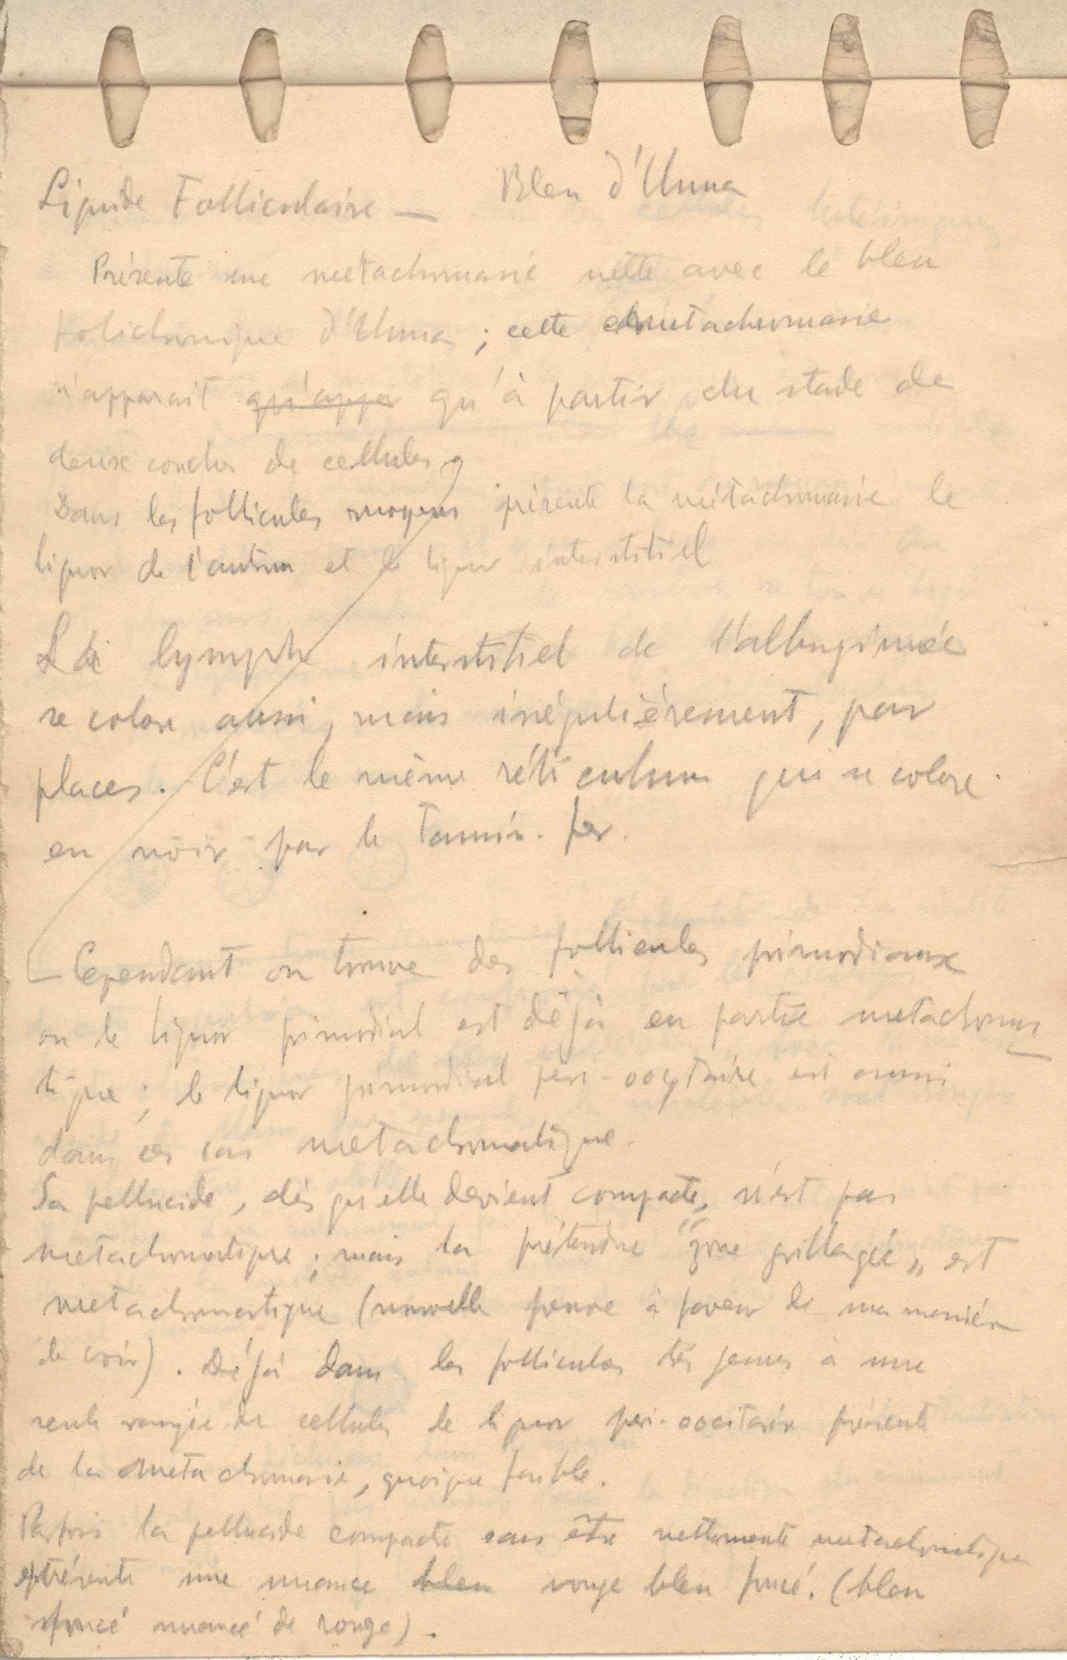 Liquide Folliculaire — Bleu d'Unna
Présente une metachromasie nette avec le bleu
polichromique d'Unna ; cette metachromasie
n'apparait qu'appa qu'à partir du stade de
deux couches de cellules
Dans les follicules moyens présente la métachromasie le
liquor de l'antrum et le liquor interstitiel
La lymphe interstitiel de l'albuginée
se colore aussi, mais irrégulièrement, par
places. C'est le même réticulum qui se colore
en noir par le Tannin. fer.
— Cependant on trouve des follicules primordiaux
ou le liquor primordial est déjà en partie metachroma
tique ; le liquor primordial peri-oocytaire est aussi
dans ces cas metachromatique.
La pellucide, dès qu'elle devient compacte, n'est pas
metachromatique ; mais la prétendue "zone grillagée" est
metachromatique (nouvelle preuve à faveur de ma manière
de voir). Déjà dans les follicules très jeunes à une
seule rangée de cellules le liquor peri-oocitaire présente
de la metachromasie, quoique faible.
Parfois la pellucide compacte sans être nettemente metachromatique
présente une nuance bleu rouge bleu foncé. (bleu
foncé nuancé de rouge).